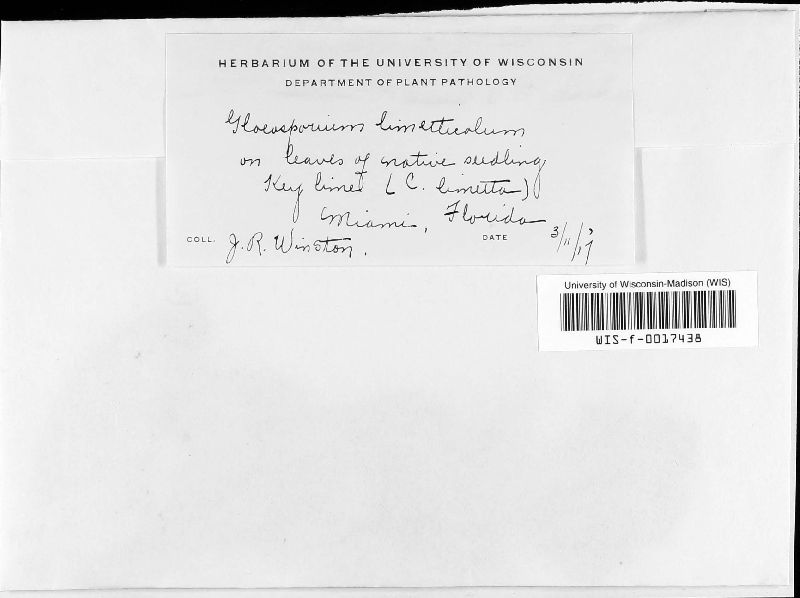 HERBARIUM OF THE UNIVERSITY OF WISCONSIN
DEPARTMENT OF PLANT PATHOLOGY
Gloeosporium limetticolum
on leaves of native seedling
Key limes ( C. limetta )
Miami, Florida
COLL. J. R. Winston. DATE 3/11/17
University of Wisconsin-Madison (WIS)
WIS-f-0017438